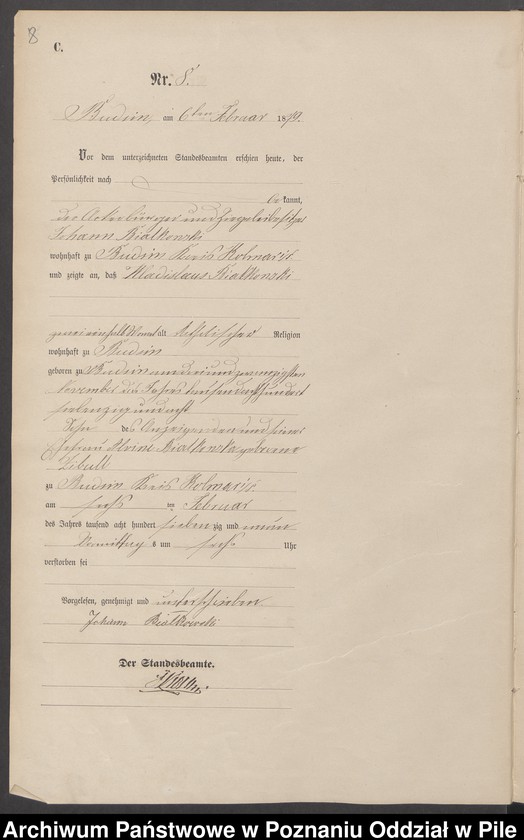 8
C.
Nr. 8.
Budsin, am 6ten Februar 1879.
Vor dem unterzeichneten Standesbeamten erschien heute, der
Persönlichkeit nach
be kannt,
der Ackerbürger und Ziegeleibesitzer
Johann Bialkowski
wohnhaft zu Budsin Kreis Kolmar i/P
und zeigte an, daß Wladislaus Bialkowski
alt katholischer Religion
wohnhaft zu Budsin
geboren zu Budsin am drei und zwanzigsten
November des Jahres tausend acht hundert
siebenzig und acht
Sohn des Anzeigenden und seiner
Ehefrau Bialkowska geborene
zu Budsin Kreis Kolmar i/P
am sechs ten Februar
des Jahres tausend acht hundert siebenzig und neun
Vormittags um sechs Uhr
verstorben sei
Vorgelesen, genehmigt und unterschrieben
Johann Bialkowski
Der Standesbeamte.
Archiwum Państwowe w Poznaniu Oddział w Pile